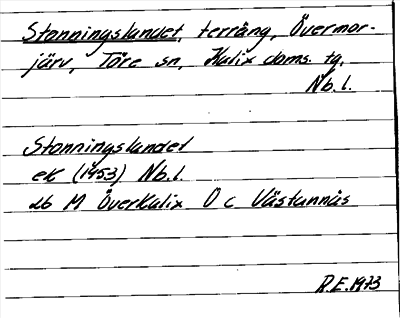 Stonningslandet, terräng, Övermor-
järv, Töre sn, Kalix doms. tg,
Nb.l.
Stonningslandet
ek (1953) Nb.l.
26 M Överkalix Ö c Västannäs
R.E. 1973